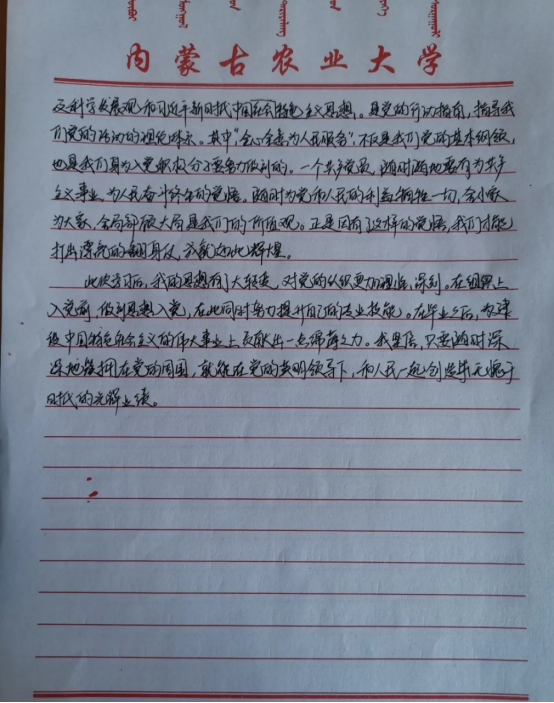 内蒙古农业大学
及科学发展观和习近平新时代中国社会特色主义思想。是党的行动指南,指导我
们党的活动的理论体系。其中"全心全意为人民服务",不仅是我们党的基本纲领,
也是我们身为入党积极分子要努力做到的。一个共产党员,随时随地要有为共产
主义事业,为人民奋斗终生的觉悟。随时为党和人民的利益牺牲一切,舍小家
为大家,舍局部顾大局是我们的价值观。正是因有了这样的觉悟,我们才能
打出漂亮的翻身仗,方能如此辉煌。
此次学习后,我的思想有了大转变,对党的认识更加理性,深刻。在组织上
入党前,做到思想入党,在此同时努力提升自己的专业技能。在毕业之后,为建
设中国特色社会主义的伟大事业上贡献出一点绵薄之力。我坚信,只要随时深
深地簇拥在党的周围,就能在党的英明领导下,和人民一起创造毕无愧于
时代的光辉业绩。